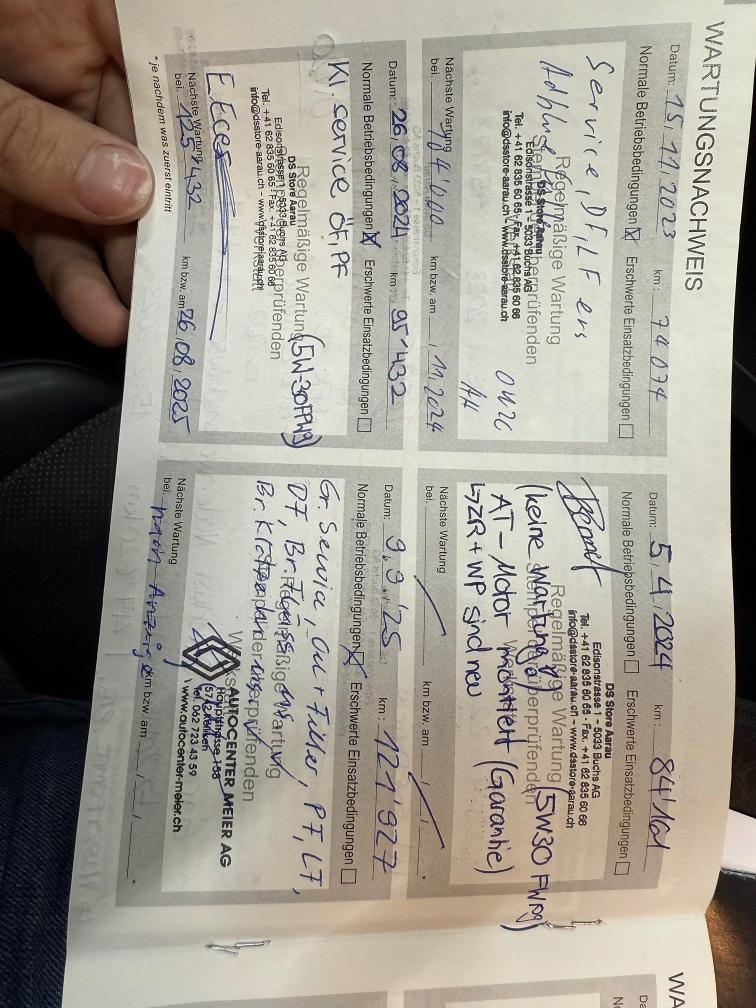 WARTUNGSNACHWEIS
Datum: 15.11.2023 km: 74 074
Normale Betriebsbedingungen ☒ Erschwerte Einsatzbedingungen ☐
Service, DF, LF ers
Adblue
Regelmäßige Wartung
DS Store Aarau
Edisonstrasse 1 - 5033 Buchs AG
Tel. +41 62 835 60 65 · Fax. +41 62 835 60 66
info@dsstore-aarau.ch - www.dsstore-aarau.ch
Nächste Wartung
bei: 104'000 km bzw. am 11.2024
Datum: 26.08.2024 km: 95'432
Normale Betriebsbedingungen ☒ Erschwerte Einsatzbedingungen ☐
Kl. service ÖF, PF
(5W-30 FPW9)
Regelmäßige Wartung
DS Store Aarau
Edisonstrasse 1 - 5033 Buchs AG
Tel. +41 62 835 60 65 · Fax. +41 62 835 60 66
info@dsstore-aarau.ch - www.dsstore-aarau.ch
Nächste Wartung
bei: 125'432 km bzw. am 26.08.2025
* je nachdem was zuerst eintritt
Datum: 5.4.2024 km: 84'161
Normale Betriebsbedingungen ☐ Erschwerte Einsatzbedingungen ☐
DS Store Aarau
Edisonstrasse 1 - 5033 Buchs AG
Tel. +41 62 835 60 65 - Fax. +41 62 835 60 66
info@dsstore-aarau.ch - www.dsstore-aarau.ch
Regelmäßige Wartung
(5W30
(keine Wartung)
AT-Motor montiert (Garantie)
↳ ZR + WP sind neu
Nächste Wartung
bei: km bzw. am *
Datum: 9.9.'25 km: 121'927
Normale Betriebsbedingungen ☒ Erschwerte Einsatzbedingungen ☐
Gr. Service, Oil + Filter, PF, LF,
DF, Br.
Br. Klötze
Regelmäßige Wartung
AUTOCENTER MEIER AG
Hauptstrasse
Tel. 062 723 43 59
www.autocenter-meier.ch
Nächste Wartung
bei: nach Anzeige km bzw. am *
WA